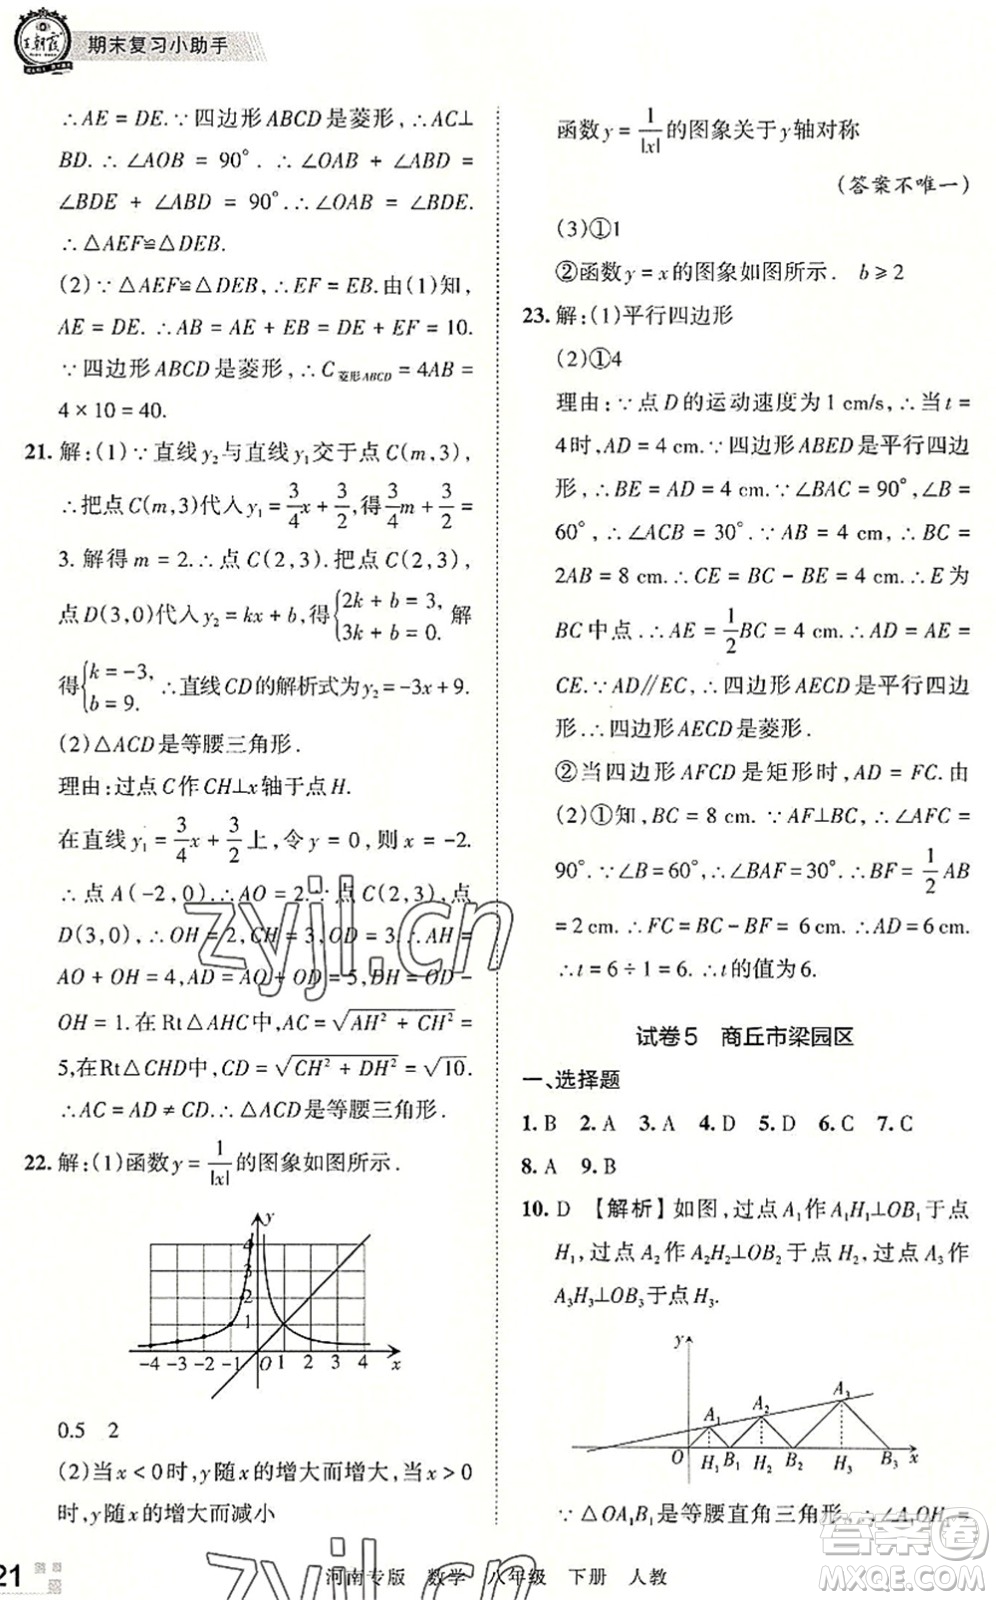 王朝霞
期末复习小助手
∴AE = DE.∵四边形ABCD是菱形,∴AC⊥
BD.∴∠AOB = 90°.∴∠OAB + ∠ABD =
∠BDE + ∠ABD = 90°.∴∠OAB = ∠BDE.
∴△AEF≌△DEB.
(2)∵△AEF≌△DEB,∴EF = EB.由(1)知,
AE = DE.∴AB = AE + EB = DE + EF = 10.
∵四边形ABCD是菱形,∴C菱形ABCD = 4AB =
4 × 10 = 40.
21. 解:(1)∵直线y₂与直线y₁交于点C(m,3),
∴把点C(m,3)代入y₁ = 3/4 x + 3/2,得 3/4 m + 3/2 =
3.解得m = 2.∴点C(2,3).把点C(2,3),
点D(3,0)代入y₂ = kx + b,得{2k + b = 3, 3k + b = 0. 解
得{k = -3, b = 9. ∴直线CD的解析式为y₂ = -3x + 9.
(2)△ACD是等腰三角形.
理由:过点C作CH⊥x轴于点H.
在直线y₁ = 3/4 x + 3/2 上,令y = 0,则x = -2.
∴点A(-2,0).∴AO = 2.∵C(2,3),点
D(3,0),∴OH = 2,CH = 3,OD = 3.∴AH =
AO + OH = 4,AD = AO + OD = 5,DH = OD -
OH = 1.在Rt△AHC中,AC = √(AH² + CH²) =
5,在Rt△CHD中,CD = √(CH² + DH²) = √10.
∴AC = AD ≠ CD.∴△ACD是等腰三角形.
22. 解:(1)函数y = 1/|x| 的图象如图所示.
y
4
3
2
1
-4 -3 -2 -1 O 1 2 3 4 x
0.5 2
(2)当x < 0时,y随x的增大而增大,当x > 0
时,y随x的增大而减小
函数y = 1/|x| 的图象关于y轴对称
(答案不唯一)
(3)①1
②函数y = x的图象如图所示. b ≥ 2
23. 解:(1)平行四边形
(2)①4
理由:∵点D的运动速度为1 cm/s,∴当t =
4时,AD = 4 cm.∵四边形ABED是平行四边
形,∴BE = AD = 4 cm.∵∠BAC = 90°,∠B =
60°,∴∠ACB = 30°.∵AB = 4 cm.∴BC =
2AB = 8 cm.∴CE = BC - BE = 4 cm.∴E为
BC中点.∴AE = 1/2 BC = 4 cm.∴AD = AE =
CE.∵AD∥EC,∴四边形AECD是平行四边
形.∴四边形AECD是菱形.
②当四边形AFCD是矩形时,AD = FC.由
(2)①知,BC = 8 cm.∵AF⊥BC,∴∠AFC =
90°.∵∠B = 60°,∴∠BAF=30°.∴BF = 1/2 AB
= 2 cm.∴FC = BC - BF = 6 cm.∴AD = 6 cm.
∴t = 6 ÷ 1 = 6.∴t的值为6.
试卷5 商丘市梁园区
一、选择题
1. B 2. A 3. A 4. D 5. D 6. C 7. C
8. A 9. B
10. D 【解析】如图,过点A₁作A₁H₁⊥OB₁于点
H₁,过点A₂作A₂H₂⊥OB₂于点H₂,过点A₃作
A₃H₃⊥OB₃于点H₃.
y
A₁ A₂ A₃
O H₁ B₁ H₂ B₂ H₃ B₃ x
∵△OA₁B₁是等腰直角三角形,∴∠A₁OH₁ =
zyjl.cn
zyjl.cn
答案圈
MXQE.COM
21
河南专版 数学 八年级 下册 人教